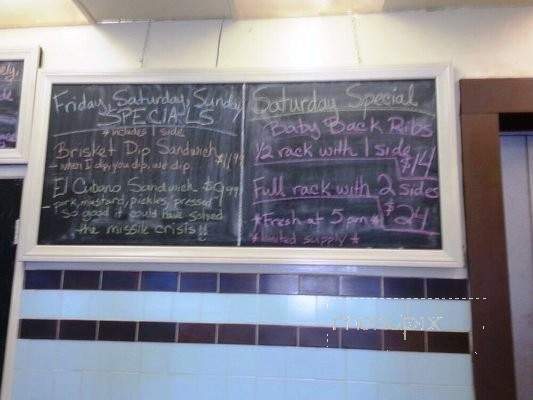 Friday, Saturday, Sunday
SPECIALS
* includes 1 side
Brisket Dip Sandwich $11.99
- when I dip, you dip, we dip
El Cubano Sandwich - $9.99
- pork, mustard, pickles, pressed
so good it could have solved
the missile crisis!!
Saturday Special
Baby Back Ribs
1/2 rack with 1 side
$14
Full rack with 2 sides
$24
*Fresh at 5 pm*
*limited supply*